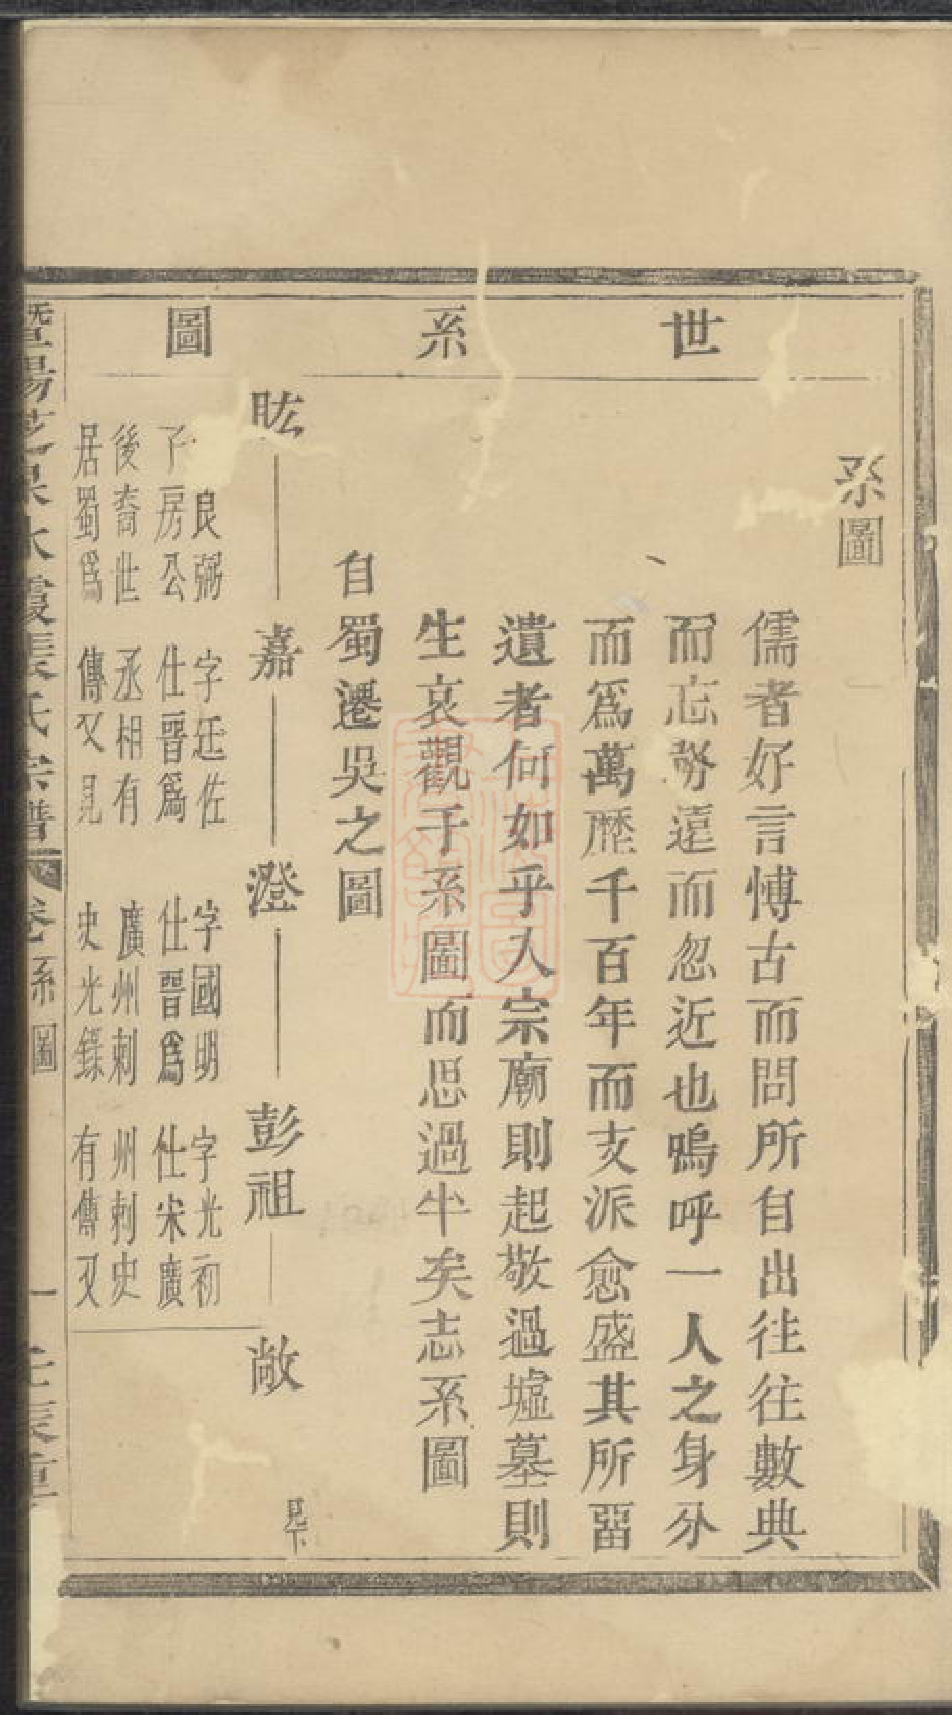 世系圖
系圖
儒者好言愽古而問所自出徃徃數典
而忘務遠而忽近也嗚呼一人之身分
而爲萬歷千百年而支派愈盛其所畱
遺者何如乎人宗廟則起敬過墟墓則
生哀觀于系圖而思過半矣志系圖
自蜀遷吳之圖
昡 嘉 澄 彭祖 敞 見下
良弼
子房公
後裔世
居蜀爲
字廷佐
仕晉爲
丞相有
傳又見
字國明
仕晉爲
廣州刺
史光錄
字光初
仕宋廣
州刺史
有傳又
暨陽芝泉水霞張氏宗譜 卷 系圖 一